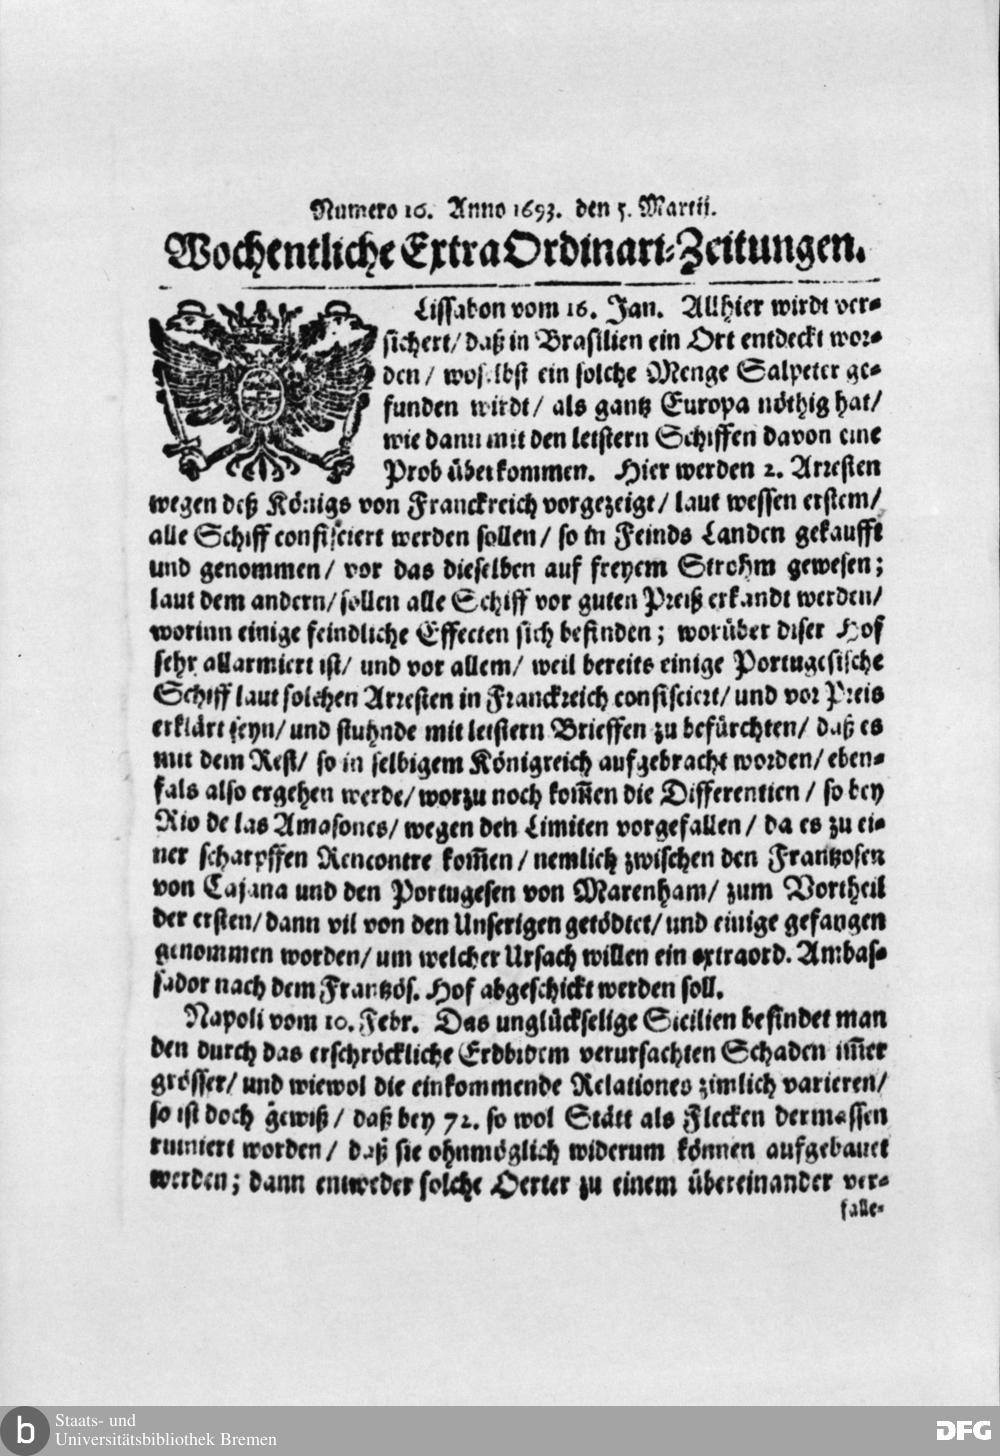 Numero 16. Anno 1693. den 5. Martij.
Wochentliche ExtraOrdinari-Zeitungen.
Lissabon vom 16. Jan. Allhier wirdt ver-
sichert/ daß in Brasilien ein Ort entdeckt wor-
den/ woselbst ein solche Menge Salpeter ge-
funden wirdt/ als gantz Europa nöthig hat/
wie dann mit den letstern Schiffen davon eine
Prob überkommen. Hier werden 2. Arresten
wegen deß Königs von Franckreich vorgezeigt/ laut wessen erstem/
alle Schiff confisciert werden sollen/ so in Feinds Landen gekaufft
und genommen/ vor das dieselben auf freyem Strohm gewesen;
laut dem andern/ sollen alle Schiff vor guten Preiß erkandt werden/
worinn einige feindliche Effecten sich befinden; worüber diser Hof
sehr allarmiert ist/ und vor allem/ weil bereits einige Portugesische
Schiff laut solchen Arresten in Franckreich confisciert/ und vor Preis
erklärt seyn/ und stuhnde mit letstern Brieffen zu befürchten/ daß es
mit dem Rest/ so in selbigem Königreich aufgebracht worden/ eben-
fals also ergehen werde/ worzu noch kom̃en die Differentien/ so bey
Rio de las Amasones/ wegen den Limiten vorgefallen/ da es zu ei-
ner scharpffen Rencontre kom̃en/ nemlich zwischen den Frantzosen
von Cajana und den Portugesen von Marenham/ zum Vortheil
der ersten/ dann vil von den Unserigen getödtet/ und einige gefangen
genommen worden/ um welcher Ursach willen ein extraord. Ambas-
sador nach dem Frantzös. Hof abgeschickt werden soll.
Napoli vom 10. Febr. Das unglückselige Sicilien befindet man
den durch das erschröckliche Erdbidem verursachten Schaden im̃er
grösser/ und wiewol die einkommende Relationes zimlich varieren/
so ist doch gewiß/ daß bey 72. so wol Stätt als Flecken dermassen
ruiniert worden/ daß sie ohnmöglich widerum können aufgebauet
werden; dann entweder solche Oerter zu einem übereinander ver-
falle-
b
Staats- und
Universitätsbibliothek Bremen
DFG